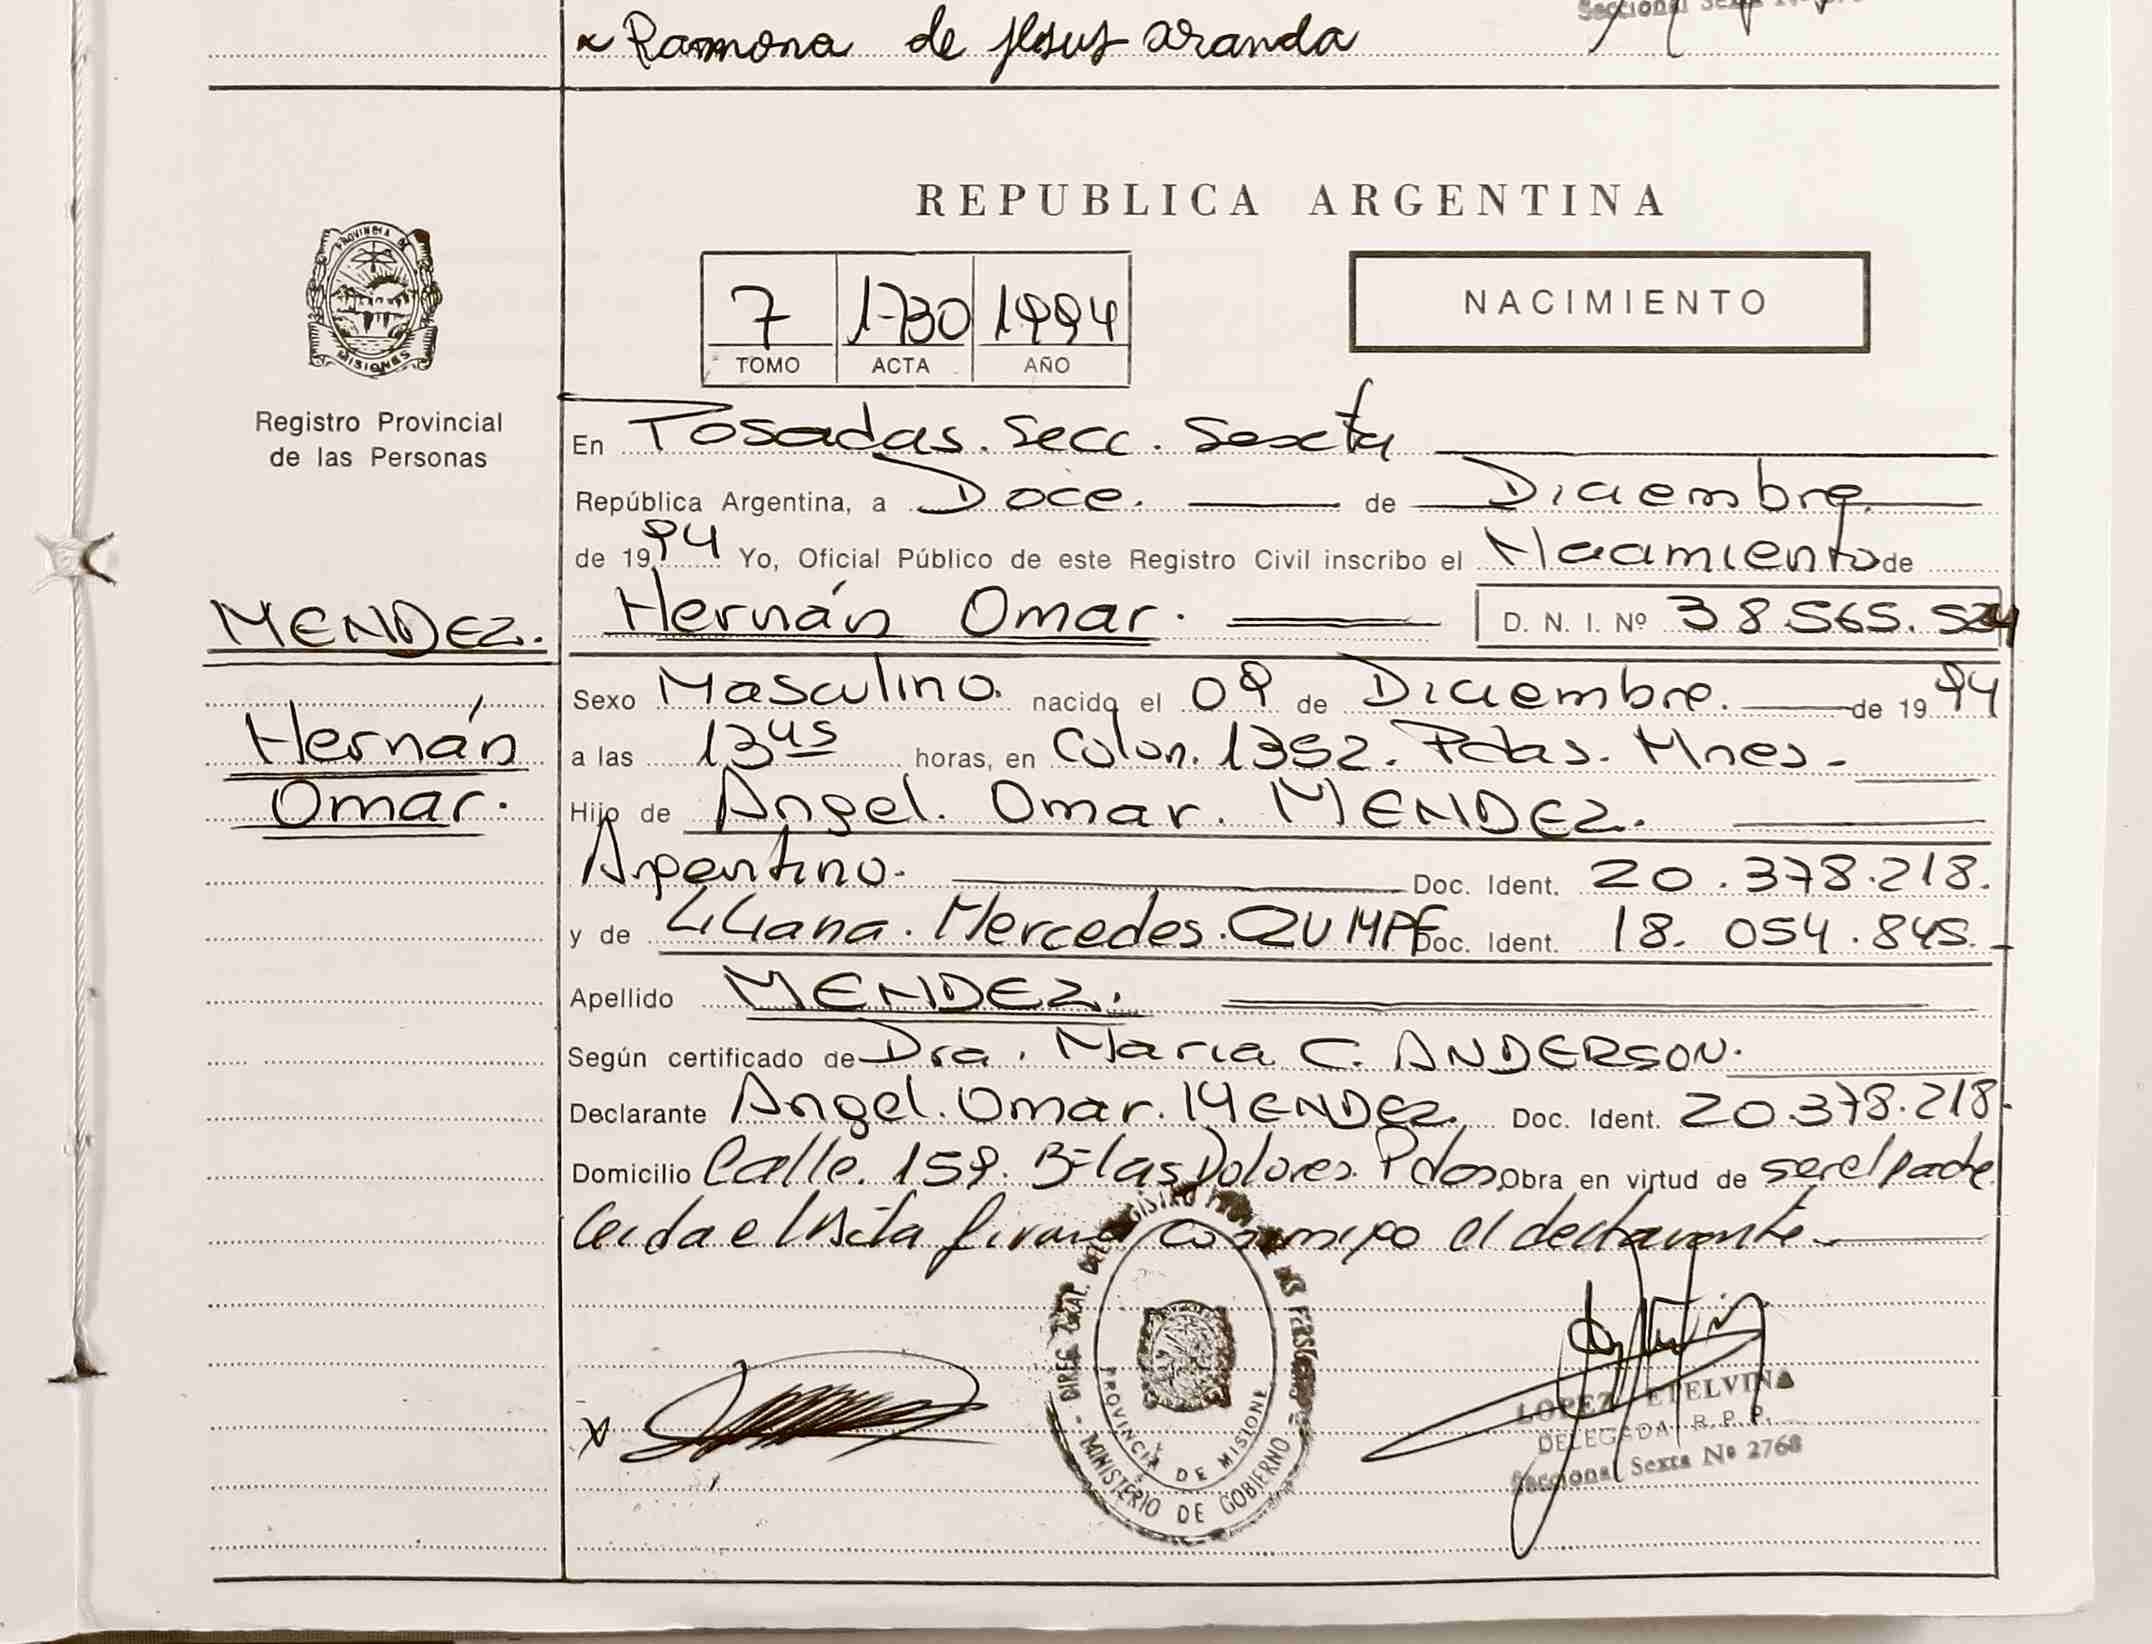 Seccional Sexta
Ramona de Jesus Aranda
REPUBLICA ARGENTINA
PROVINCIA DE
MISIONES
7 1730 1994
TOMO ACTA AÑO
NACIMIENTO
Registro Provincial
de las Personas
En Posadas. Secc. Sexta
República Argentina, a Doce. de Diciembre
de 1994 Yo, Oficial Público de este Registro Civil inscribo el Nacimiento de
MENDEZ.
Hernán Omar. D. N. I. Nº 38.565.524
Sexo Masculino. nacido el 09 de Diciembre. de 1994
Hernán
a las 13 45 horas, en Colon. 1352. Pdas. Mnes.
Omar.
Hijo de Angel. Omar. MENDEZ.
Argentino. Doc. Ident. 20.378.218.
y de Liliana. Mercedes. Doc. Ident. 18.054.845.
Apellido MENDEZ.
Según certificado de Dra. Maria C. ANDERSON.
Declarante Angel. Omar. MENDEZ. Doc. Ident. 20.378.218.
Domicilio Calle. 159. Bº las Dolores. Pdas. Obra en virtud de ser el padre
Leida e Inscita firma conmigo el declarante.
DIREC. GRAL. DEL REGISTRO PROV. DE LAS PERSONAS
PROVINCIA DE MISIONES
- MINISTERIO DE GOBIERNO -
x
LOPEZ ETELVINA
DELEGADA R. P. P.
Seccional Sexta Nº 2768